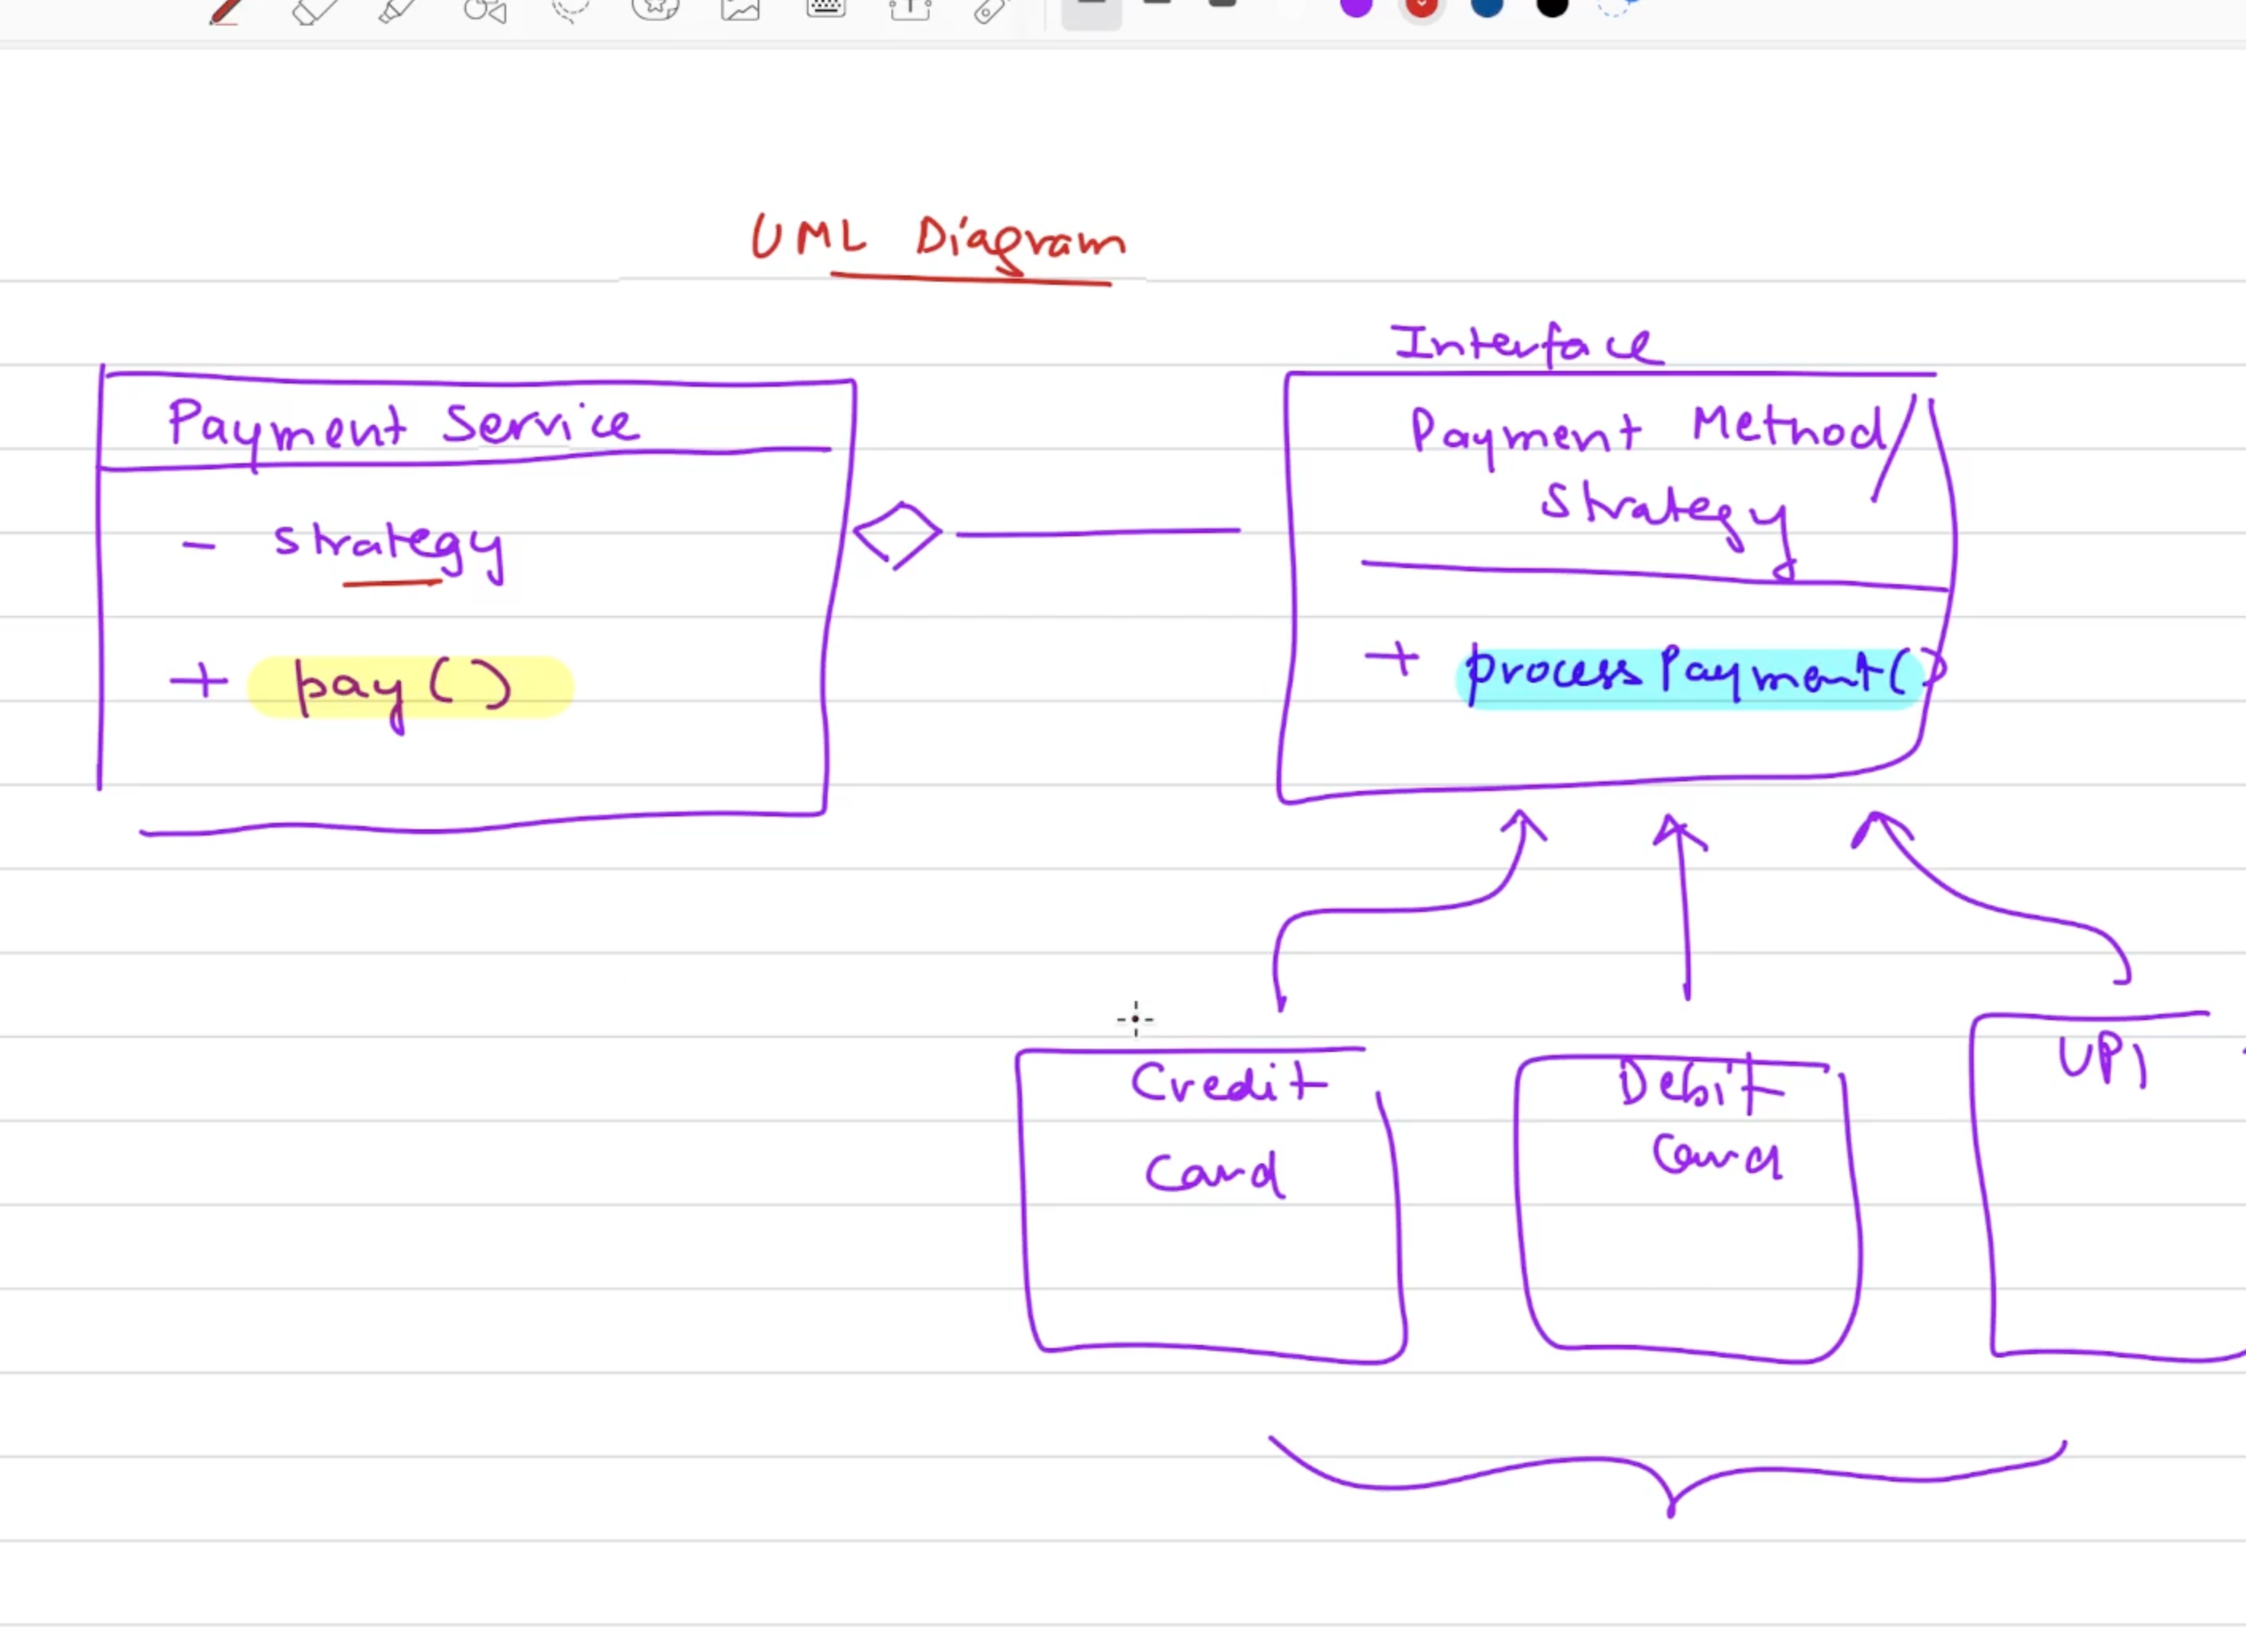 UML Diagram
Payment Service
- strategy
+ pay()
Interface
Payment Method/
Strategy
+ processPayment()
Credit
Card
Debit
Card
UPI